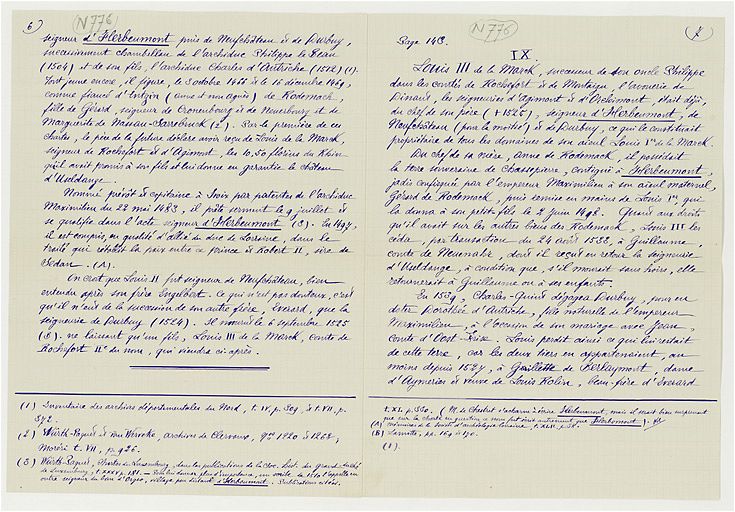 6)
N 776
seigneur d'Herbeumont puis de Neufchâteau & de Durbuy,
successivement chambellan de l'archiduc Philippe le Beau
(1504) et de son fils, l'archiduc Charles d'Autriche (1512) (1).
Fort jeune encore, il figure, le 3 octobre 1466 & le 15 décembre 1469,
comme fiancé d' (anne et non agnès) de Rodemach,
fille de Gérard, seigneur de Cronenbourg & de Neuerbourg et de
Marguerite de Nassau-Sarrebruck (2). Par la première de ces
chartes, le père de la future déclare avoir reçu de Louis de la Marck,
seigneur de Rochefort & d'Agimont, les 10,50 florins du Rhin
qu'il avait promis à son fils et lui donne en garantie le château
d'Useldange.
Nommé prévôt & capitaine à Ivoix par patentes de l'archiduc
Maximilien du 22 mai 1483, il prête serment le 9 juillet &
se qualifie dans l'acte seigneur d'Herbeumont (3). En 1497,
il est compris, en qualité d'allié du duc de Lorraine, dans le
traité qui rétablit la paix entre ce prince & Robert II, sire de
Sedan. (A).
On croit que Louis II fut seigneur de Neufchâteau, bien
entendu après son frère Engelbert. Ce qui n'est pas douteux, c'est
qu'il n'eut de la succession de son autre frère, Everard, que la
seigneurie de Durbuy (1524). Il mourut le 6 septembre 1525
(B). ne laissant qu'un fils, Louis III de la Marck, comte de
Rochefort IIe du nom, qui viendra ci-après.
(1) Inventaire des archives départementales du Nord, t. IV, p. 309, & t. VII, p.
372.
(2) Würth-Paquet & Van Wervecke, archives de Clervaux, nos 1220 & 1268,
Moréri t. VII, p. 926.
(3) Würth-Paquet, Chartes de Luxembourg, dans les publications de la Soc. hist. du grand-duché
de Luxembourg, t. XXXV p. 181. l'appelle en
outre seigneur du ban d'Orgeo, village peu distant d'Herbeumont. Publications citées,
N 776
Page 143.
IX
Louis III de la Marck, successeur de son oncle Philippe
dans les comtés de Rochefort & de Montaigu, l'avouerie de
Dinant, les seigneuries d'Agimont & d'Orchimont, était déjà,
du chef de son père (+ 1525), seigneur d'Herbeumont, de
Neufchâteau (pour la moitié) & de Durbuy, ce qui le constituait
propriétaire de tous les domaines de son aïeul Louis Ier de la Marck.
Du chef de sa mère, anne de Rodemack, il possédait
la terre souveraine de Chassepierre, contiguë à Herbeumont,
jadis confisquée par l'empereur Maximilien à son aïeul maternel,
Gérard de Rodemack, puis remise en mains de Louis Ier, qui
la donna à son petit fils le 2 juin 1498. Quant aux droits
qu'il avait sur les autres biens des Rodemack, Louis III les
céda, par transaction du 24 août 1533, à Guillaume,
comte de Neuenahr, dont il reçut en retour la seigneurie
d'Useldange, à condition que, s'il mourait sans hoirs, elle
retournerait à Guillaume ou à ses enfants.
En 1539, Charles-Quint dégagea Durbuy, pour en
doter Dorothée d'Autriche, fille naturelle de l'empereur
Maximilien, à l'occasion de son mariage avec Jean,
comte d'Oost-Frise. Louis perdit ainsi ce qui lui restait
de cette terre, car les deux tiers en appartenaient, au
moins depuis 1527, à de Berlaymont, dame
d'Aymeries & veuve de Louis Rolin, beau-frère d'Everard
t. XI. p. 550, (M. de Chestret s'acharne à écrire Herbeumont, mais il serait bien surprenant
que sur la charte en question ce nom fut écrit autrement que Herbemont).
(A) mémoires de la Société d'archéologie lorraine, t. XLII. p. 38.
(B) Lamotte, pp. 164 & 170.
(1).